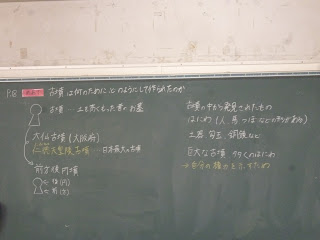 P.8 めあて 古墳は何のためにどのようにして作られたのか
古墳…土を高くもった昔のお墓
大仏古墳(大阪府)
仁徳天皇陵古墳…日本最大の古墳
前方後円墳
後(円)
前(方)
古墳の中から発見されたもの
はにわ(人、馬、つぼなどの形がある)
土器 勾玉 銅鏡など
巨大な古墳 多くのはにわ
→自分の権力を示すため